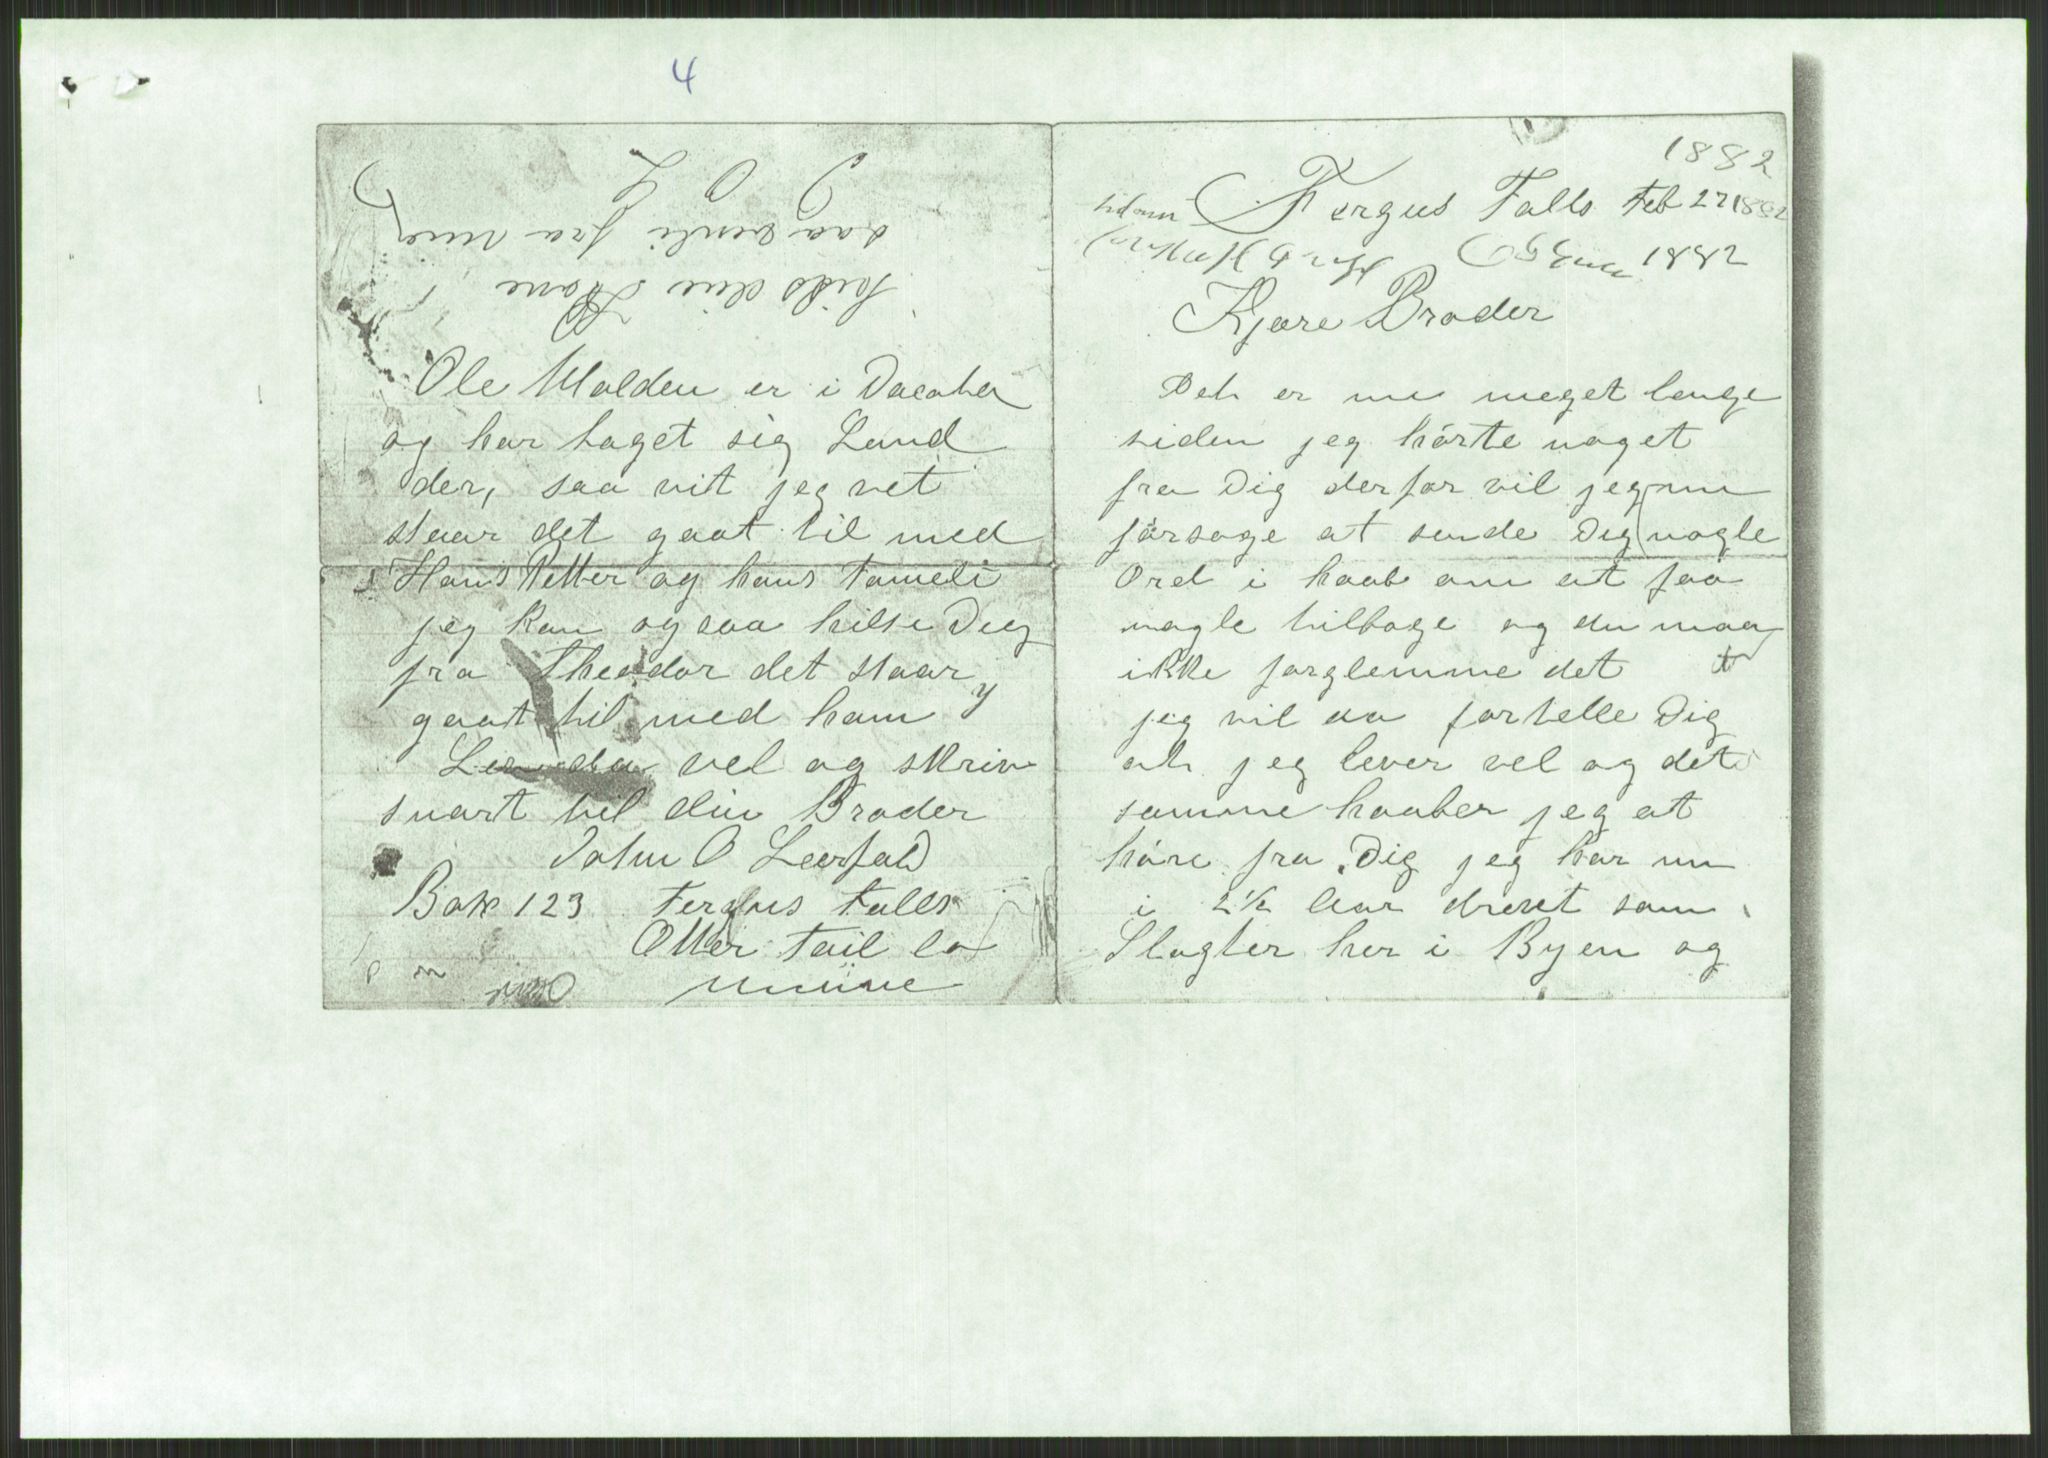 4
1882
Fergus Falls Feb 27 1882
1882
Kjære Broder
Det er nu meget lenge
siden jeg hørte noget
fra Dig derfor vil jeg nu
førsøge at sende Dig nogle
Ord i haab om at faa
nogle tilbage og du maa
ikke forglemme det
jeg vil da fortelle Dig
at jeg lever vel og det
samme haaber jeg at
høre fra Dig jeg har nu
i 2½ Aar drevet som
Slagter her i Byen og
Ole Molden er i Dacota
og har taget sig Land
der, saa vit jeg vet
staar det gaat til med
Hans Petter og hans Fameli
jeg kan ogsaa hilse Dig
fra Theodor det staar
gaat til med ham
Lev da vel og skriv
snart til din Broder
John O Leerfald
Box 123 Fergus Falls
Otter Tail Co
Minne
hils din Kone
saa venli fra mig
J O L